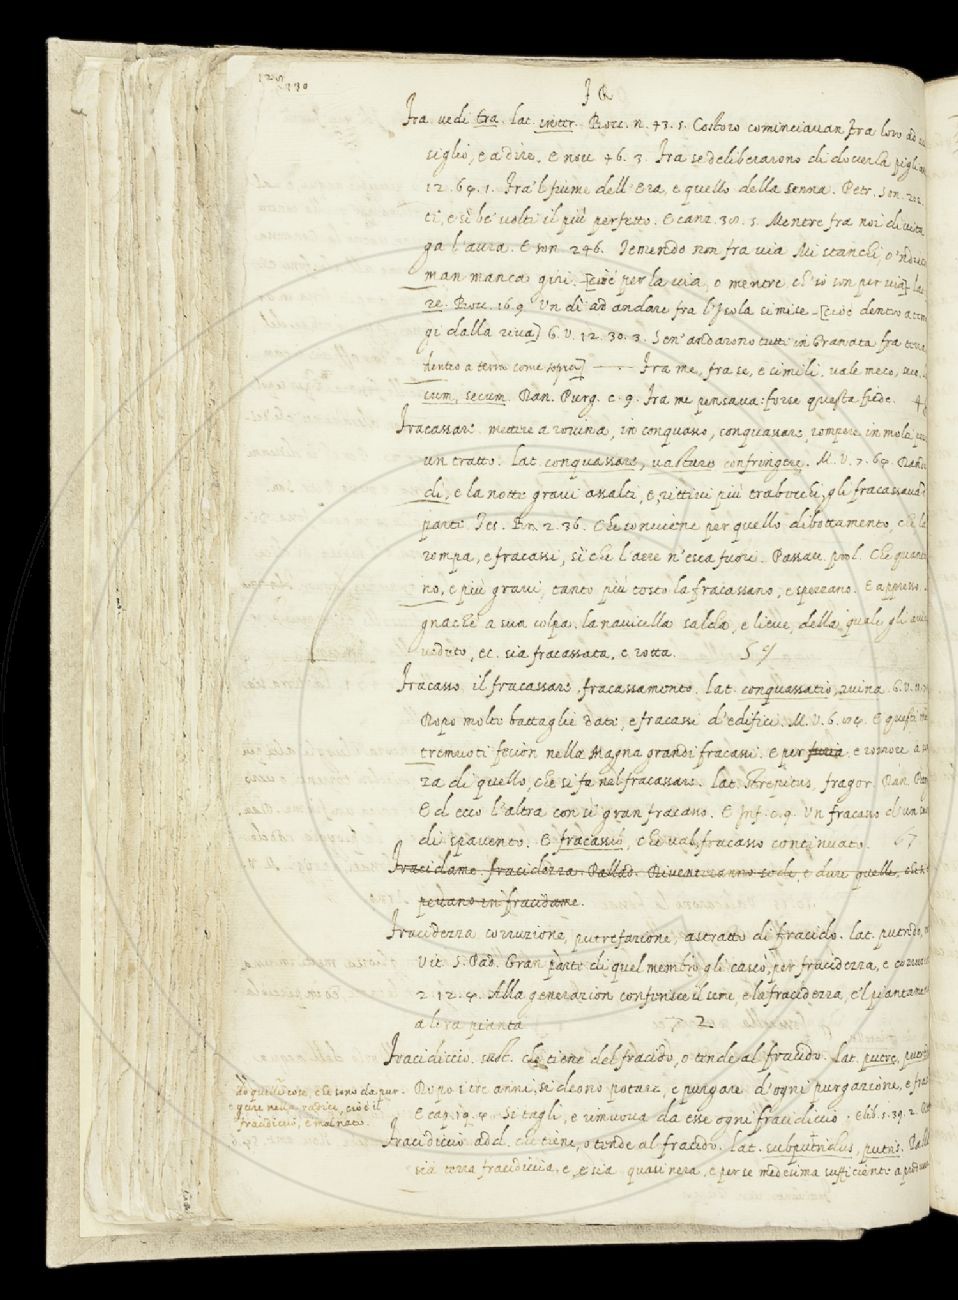 F R
Fra vedi tra. lat. inter. Bocc. n. 43. 5. Costoro cominciavan fra loro ad
siglio, e a dire. E nov. 46. 3. Fra se deliberarono di doverla
12. 64. 1. Fra'l fiume dell'Era, e quello della senna. Petr. son.
ci, e sì be' volti il più perfetto. E canz. 38. 5. Mentre fra noi di vita
ga l'aura. E son. 246. Temendo non fra via Mi stanchi, o'ndiet
man manca giri. [cioè per la via, o mentre ch'io son per via] lat
re. Bocc. 16. 9. Un dì ad andare fra l'Isola si mise [cioè dentro
gi dalla riva] G. V. 12. 30. 3. Sen'andarono tutti in Granata fra terra
dentro a terra come sopra] Fra me, fra se, e simili, vale meco, seco,
cum, secum. Dan. Purg. c. 9. Fra me pensava: forse questa fiede.
Fracassare mettere a rovina, in conquasso, conquassare, rompere in mole
un tratto. lat. conquassare, vastare confringere. M. V. 7. 64.
di, e la notte gravi assalti, e rittivi più trabocchi, gli fracassavan
parte. Tes. Br. 2. 36. Che conviene per quello dibottamento, che
rompa, e fracassi, sì che l'aere n'esca fuori. Passav. prol. Che quanto
no, e più gravi, tanto più tosto la fracassano, e spezzano. E appresso.
gnachè a sua colpa. la navicella salda, e lieve, della quale gli
veduto, ec. sia fracassata, e rotta.
Fracasso, il fracassare, fracassamento. lat. conquassatio, ruina. G. V.
Dopo molto battaglie date, e fracassi d'edifici. M. V. 6. E questi
tremuoti fecion nella Magna grandi fracassi. E per furia e romore
ra di quello, che si fa nel fracassare. lat. Strepitus, fragor. Dan.
Ed ecco l'altra con sì gran fracasso. E Inf. c. 9. Un fracasso d'un
di spavento. E fracassìo, che val fracasso continuato. 67
Fracidame fracidezza Pallad. Diventeranno sode, e dure quelle, che
peivano in fracidame.
Fracidezza corruzione, putrefazione, astratto di fracido. lat. putredo,
Vit. S. Pad. Gran parte di quel membro gli cascò, per fracidezza, e
2. 12. 4. Alla generazion confunisce il seme, e la fracidezza, e'l piantam
altra pianta 2
Fracidiccio. sust. che tiene del fracido, o tende al fracido. lat. putre,
Dopo i tre anni, si deono potare, e purgare d'ogni purgazione, e
E cap. 19. 4. Si tagli, e rimuova da esse ogni fracidiccio; E lib. 5. 39. 2.
Fracidiccio add. che tiene, o tende al fracido. lat. subputridus, putris.
sia terra fracidiccia, e, e sia quasi nera, e per se medesima sufficiente
do quelle cose, che sono da pur-
gare nella radice, cioè il
fracidiccio, e mal nato.